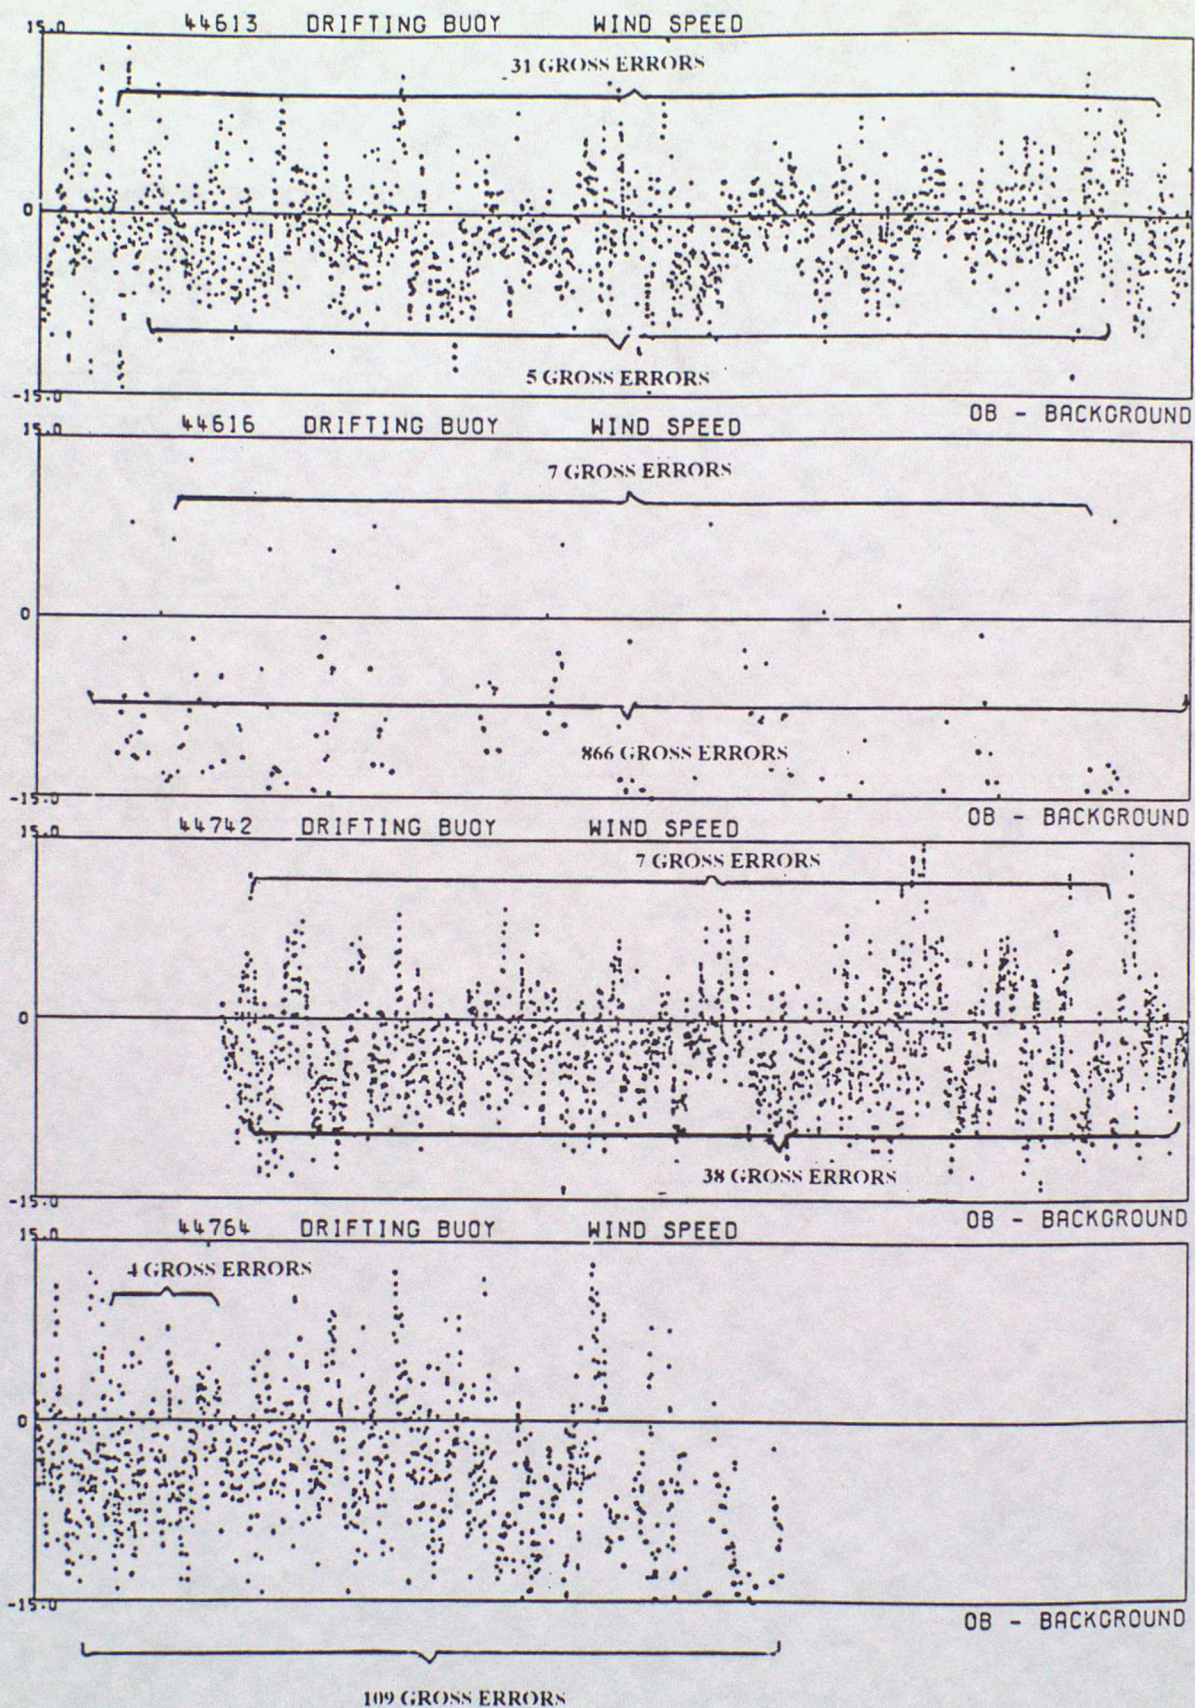 15.0 44613 DRIFTING BUOY WIND SPEED
31 GROSS ERRORS
0
5 GROSS ERRORS
-15.0
OB - BACKGROUND
15.0 44616 DRIFTING BUOY WIND SPEED
7 GROSS ERRORS
0
866 GROSS ERRORS
-15.0
OB - BACKGROUND
15.0 44742 DRIFTING BUOY WIND SPEED
7 GROSS ERRORS
0
38 GROSS ERRORS
-15.0
OB - BACKGROUND
15.0 44764 DRIFTING BUOY WIND SPEED
4 GROSS ERRORS
0
-15.0
OB - BACKGROUND
109 GROSS ERRORS